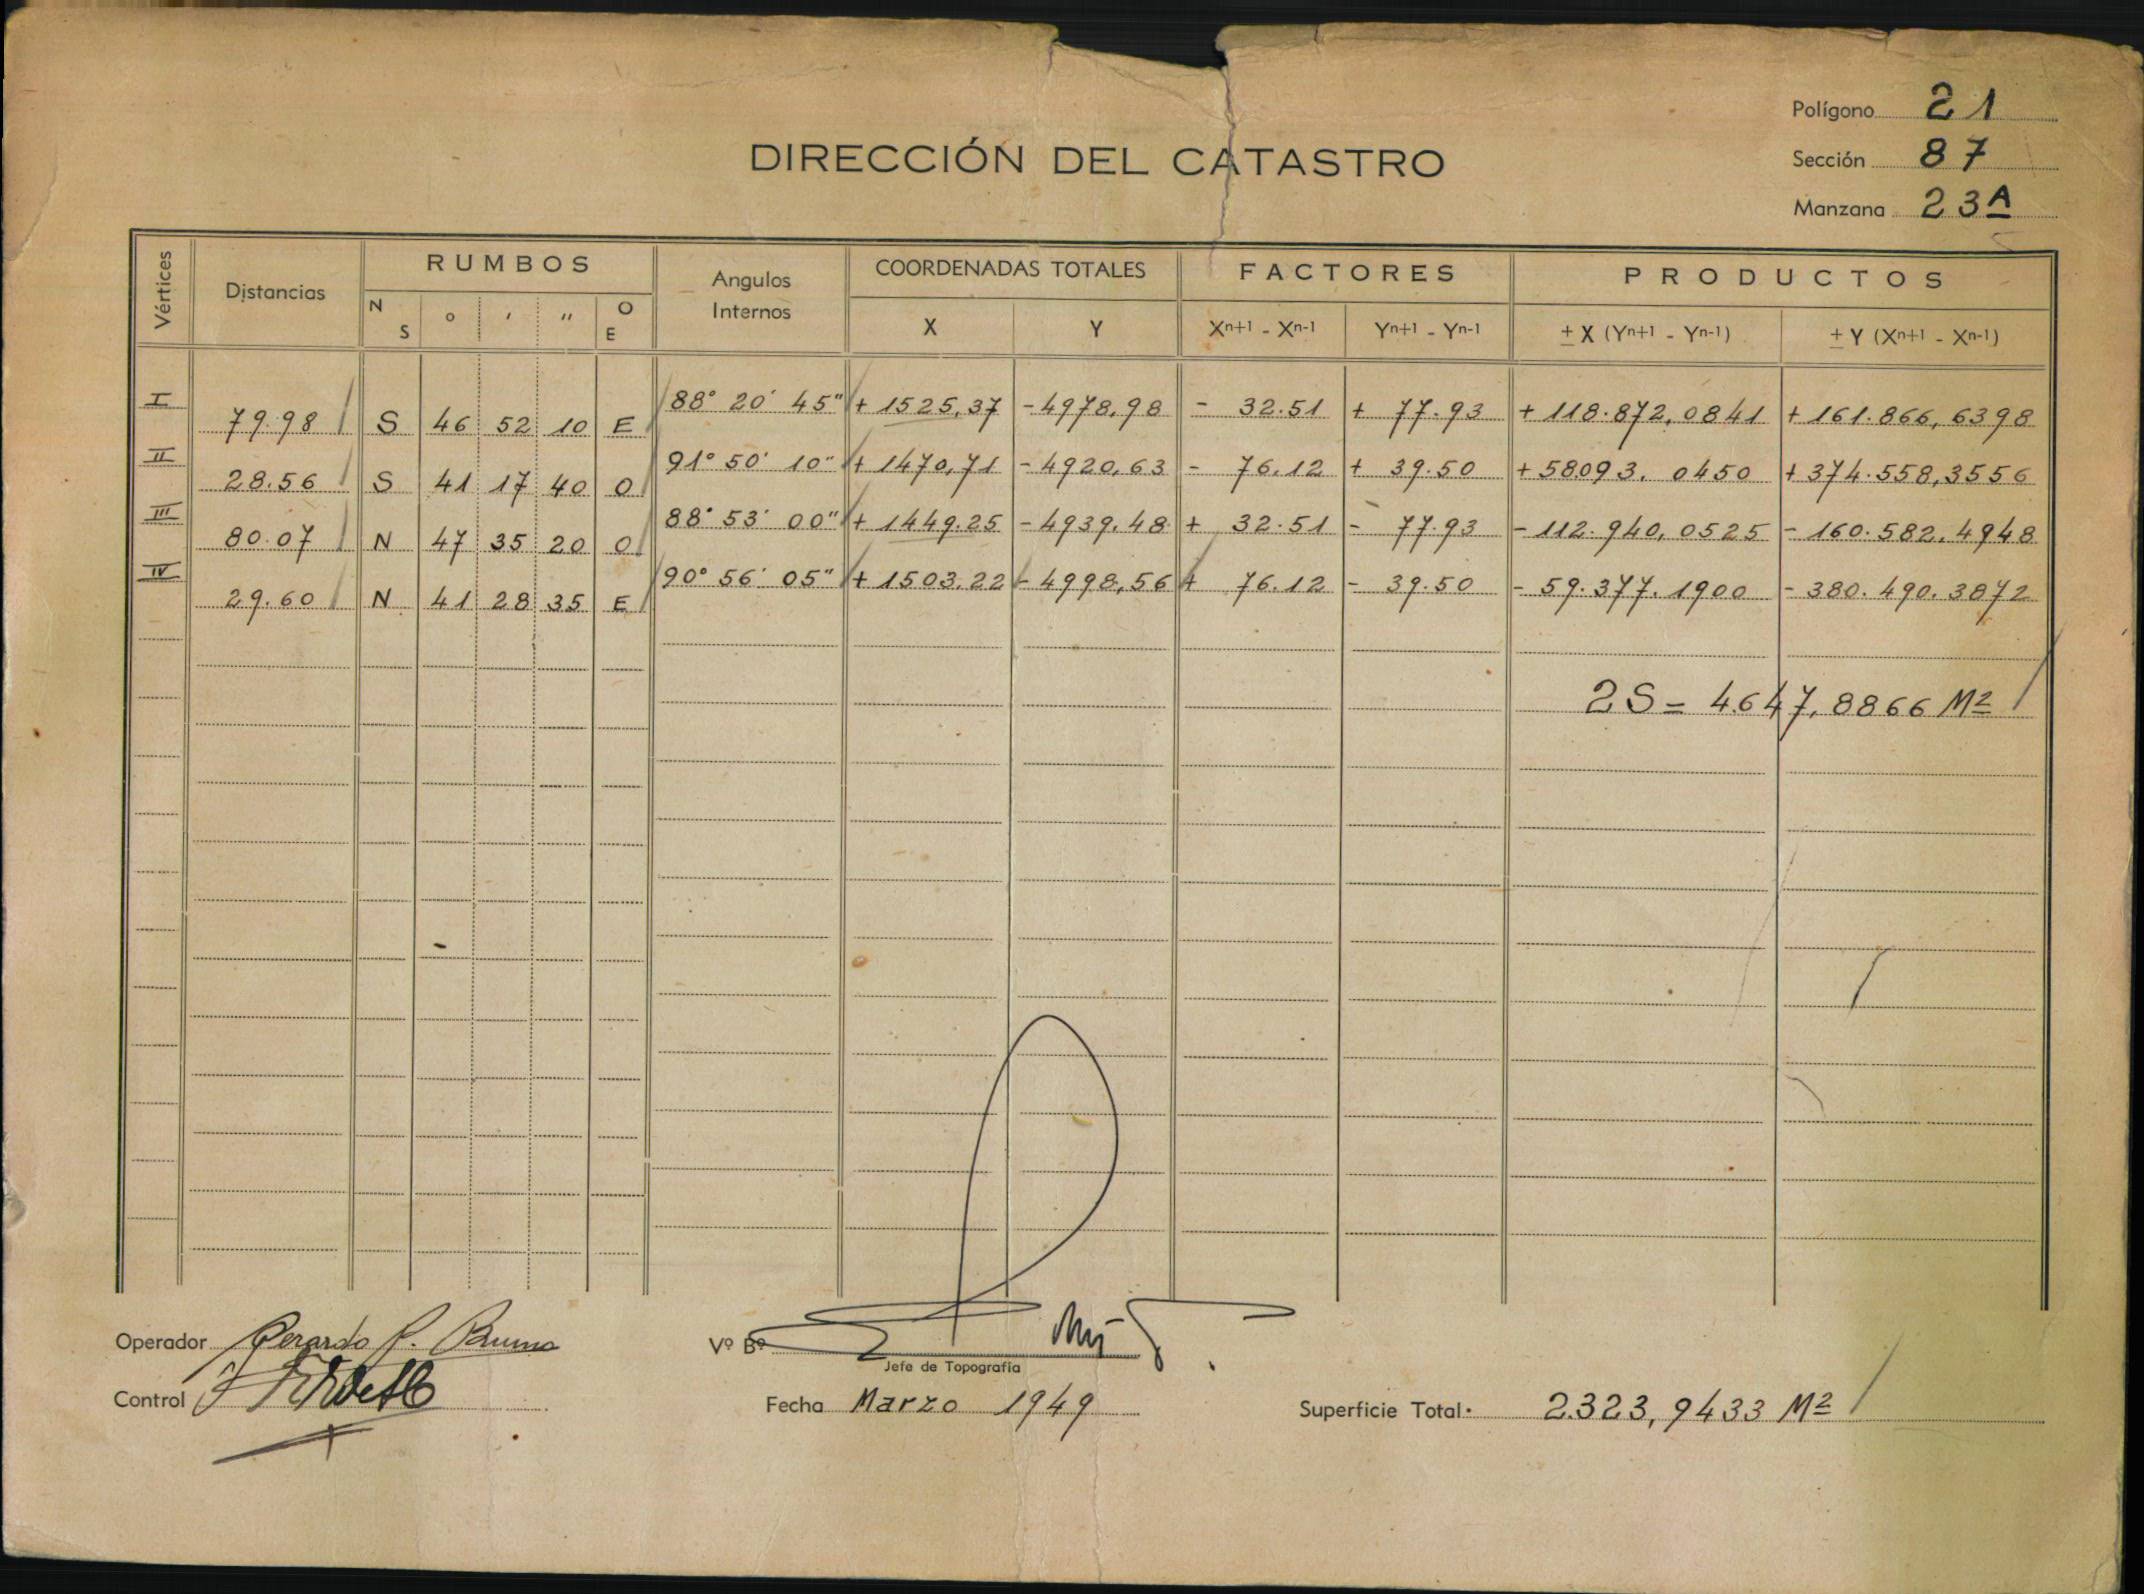 Polígono 21
DIRECCIÓN DEL CATASTRO
Sección 87
Manzana 23A
Vértices Distancias RUMBOS Angulos Internos COORDENADAS TOTALES FACTORES PRODUCTOS
N S ° ' " O E X Y Xn+1 - Xn-1 Yn+1 - Yn-1 ± X (Yn+1 - Yn-1) ± Y (Xn+1 - Xn-1)
I 88° 20' 45" + 1525,37 - 4978,98 - 32.51 + 77.93 + 118.872,0841 + 161.866,6398
79.98 S 46 52 10 E
II 91° 50' 10" + 1470,71 - 4920,63 - 76.12 + 39.50 + 58093.0450 + 374.558,3556
28.56 S 41 17 40 O
III 88° 53' 00" + 1449.25 - 4939,48 + 32.51 - 77.93 - 112.940,0525 - 160.582.4948
80.07 N 47 35 20 O
IV 90° 56' 05" + 1503.22 - 4998,56 + 76.12 - 39.50 - 59.377.1900 - 380.490.3872
29.60 N 41 28 35 E
2S = 4.647,8866 M2
Operador Gerardo P. Bruno
Vº Bº
Jefe de Topografía
Control
Fecha Marzo 1949
Superficie Total. 2.323,9433 M2